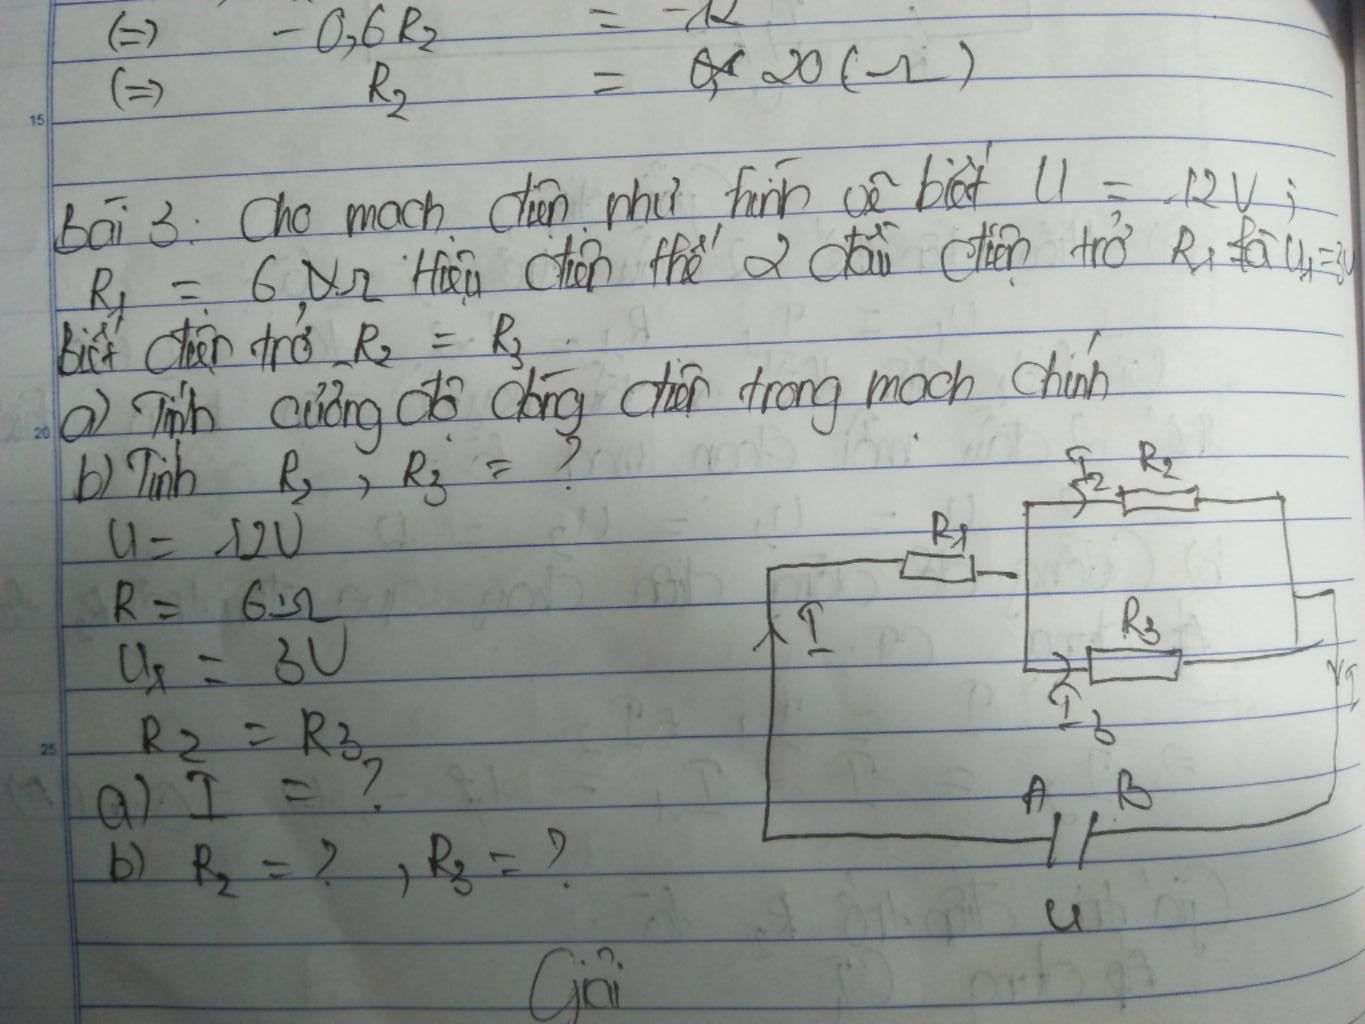 (=) -0,6R2 = -12
(=) R2 = 20 (Ω)
15
Bài 3: Cho mạch điện như hình vẽ biết U = 12V;
R1 = 6 Ω Hiệu điện thế 2 đầu điện trở R1 là U1=3V
biết điện trở R2 = R3
a) Tính cường độ dòng điện trong mạch chính
20
b) Tính R2, R3 = ?
U = 12V
R = 6Ω
U1 = 3V
R2 = R3
25
a) I = ?
b) R2 = ?, R3 = ?
Giải
I2 R2
R1
I
R3
I3
I
A B
U